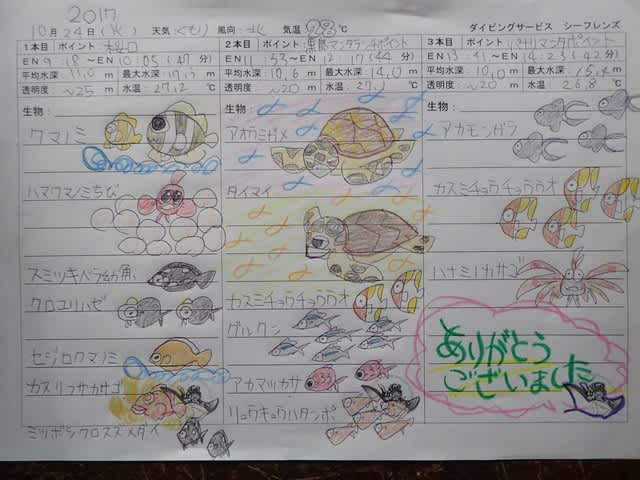 2017
10月24日(火) 天気 くもり 風向: 北 気温 28℃ ダイビングサービス シーフレンズ
1本目 ポイント:
EN 9:18~EN 10:05(47分)
平均水深: 11.0m 最大水深: m
透明度: ~25m 水温: 27.2℃
生物:
クマノミ
ハマクマノミちび
スミツキベラ幼魚
クロユリハゼ
セジロクマノミ
カスリフサカサゴ
ミツボシクロスズメダイ
2本目 ポイント: 黒島マンタランチポイント
EN 11:32~EN 12:17(44分)
平均水深: 10.6m 最大水深: 14.0m
透明度: ~20m 水温: 27. ℃
生物:
アカウミガメ
タイマイ
カスミチョウチョウウオ
グルクン
アカマツカサ
リュウキュウハタンポ
3本目 ポイント: マンタポイント
EN 13:41~EN 14:23(42分)
平均水深: 10.0m 最大水深: 15.4m
透明度: ~20m 水温: 26.8℃
生物:
アカモンガラ
カスミチョウチョウウオ
ハナミノカサゴ
ありがとう
ございました